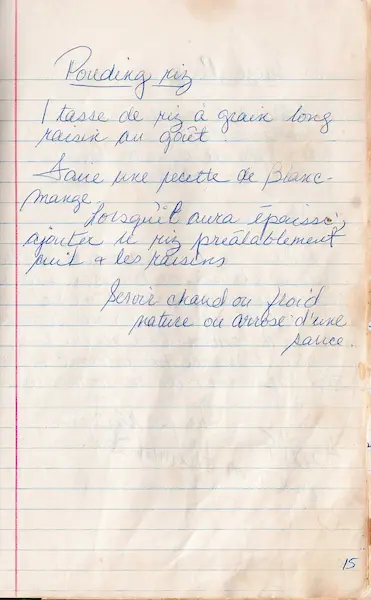 Pouding riz
1 tasse de riz à grain long
raisin au goût.
Faire une recette de Blanc-
mange
Lorsqu'il aura épaissi,
ajouter le riz préalablement
cuit & les raisins
Servir chaud ou froid
nature ou arrosé d'une
sauce.
15